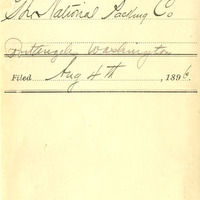 The National Packing Co
Pt Angeles Washington
Filed Aug 4th, 1896.